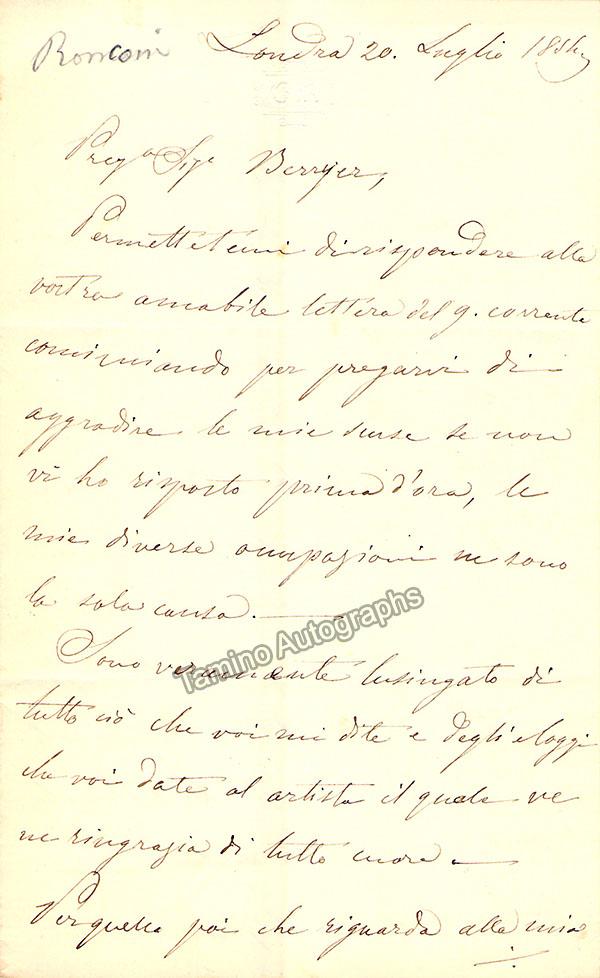 Ronconi
Londra 20. Luglio 185
Preg.a Sig.e Berryer,
Permettetemi di rispondere alla
vostra amabile lettera del 9. corrente
cominciando per pregarvi di
aggradire le mie scuse se non
vi ho risposto prima d'ora, le
mie diverse occupazioni ne sono
la sola causa. —
Tamino Autographs
Sono veramente lusingato di
tutto ciò che voi mi dite e degli eloggi
che voi date al artista il quale ve
ne ringrazia di tutto cuore —
Per quello poi che riguarda alla mia